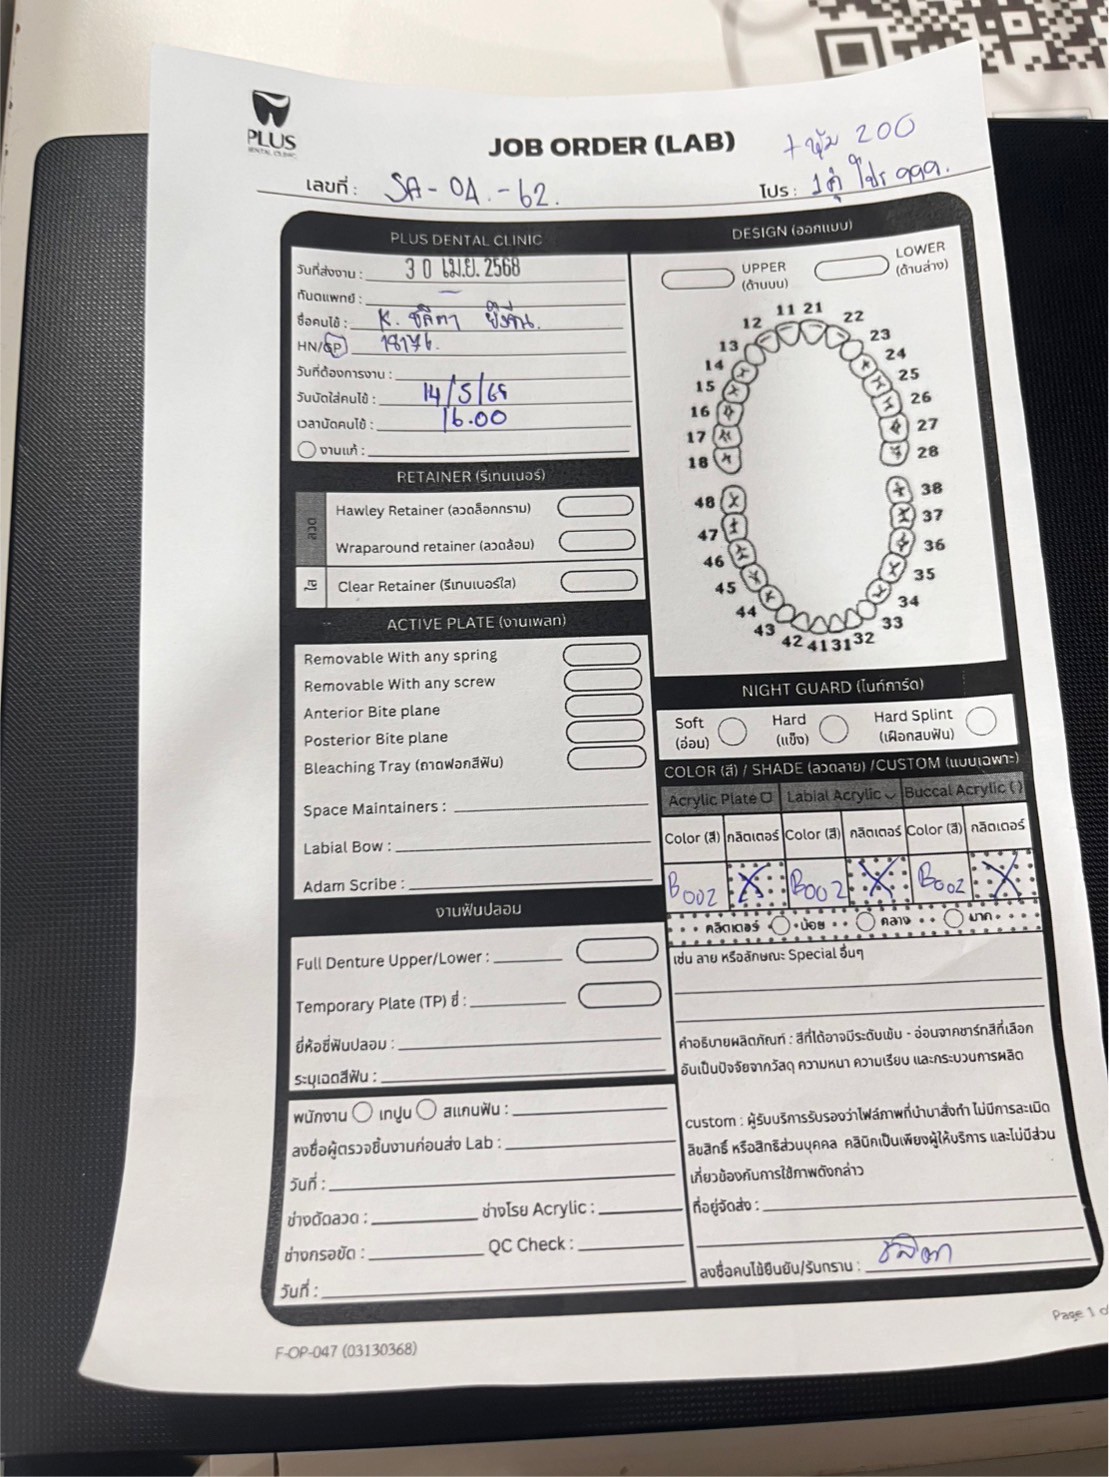 PLUS
DENTAL CLINIC
JOB ORDER (LAB)
+ 200
เลขที่ : SA - 04 - 62.
โปร : 1คู่ โปร 999.
PLUS DENTAL CLINIC
วันที่ส่งงาน : 30 เม.ย. 2568
ทันตแพทย์ : -
ชื่อคนไข้ : K. ชลิตา
HN/GP 18176.
วันที่ต้องการงาน :
วันนัดใส่คนไข้ : 14/5/68
เวลานัดคนไข้ : 16.00
งานแก้ :
RETAINER (รีเทนเนอร์)
ลวด
Hawley Retainer (ลวดล็อกกราม)
Wraparound retainer (ลวดล้อม)
ใส
Clear Retainer (รีเทนเนอร์ใส)
ACTIVE PLATE (งานเพลท)
Removable With any spring
Removable With any screw
Anterior Bite plane
Posterior Bite plane
Bleaching Tray (ถาดฟอกสีฟัน)
Space Maintainers :
Labial Bow :
Adam Scribe :
งานฟันปลอม
Full Denture Upper/Lower :
Temporary Plate (TP) ซี่ :
ยี่ห้อซี่ฟันปลอม :
ระบุเฉดสีฟัน :
พนักงาน เทปูน สแกนฟัน :
ลงชื่อผู้ตรวจชิ้นงานก่อนส่ง Lab :
วันที่ :
ช่างดัดลวด : ช่างโรย Acrylic :
ช่างกรอขัด : QC Check :
วันที่ :
DESIGN (ออกแบบ)
UPPER
(ด้านบน)
LOWER
(ด้านล่าง)
11 21
12 22
13 23
14 24
15 25
16 26
17 27
18 28
48 38
47 37
46 36
45 35
44 34
43 33
42 41 31 32
NIGHT GUARD (ไนท์การ์ด)
Soft
(อ่อน)
Hard
(แข็ง)
Hard Splint
(เฝือกสบฟัน)
COLOR (สี) / SHADE (ลวดลาย) /CUSTOM (แบบเฉพาะ)
Acrylic Plate Labial Acrylic Buccal Acrylic ( )
Color (สี) กลิตเตอร์ Color (สี) กลิตเตอร์ Color (สี) กลิตเตอร์
B002 X B002 X B002 X
กลิตเตอร์ น้อย กลาง มาก
เช่น ลาย หรือลักษณะ Special อื่นๆ
คำอธิบายผลิตภัณฑ์ : สีที่ได้อาจมีระดับเข้ม - อ่อนจากชาร์ทสีที่เลือก
อันเป็นปัจจัยจากวัสดุ ความหนา ความเรียบ และกระบวนการผลิต
custom : ผู้รับบริการรับรองว่าไฟล์ภาพที่นำมาสั่งทำ ไม่มีการละเมิด
ลิขสิทธิ์ หรือสิทธิส่วนบุคคล คลินิกเป็นเพียงผู้ให้บริการ และไม่มีส่วน
เกี่ยวข้องกับการใช้ภาพดังกล่าว
ที่อยู่จัดส่ง :
ลงชื่อคนไข้ยืนยัน/รับทราบ : ชลิตา
F-OP-047 (03130368)
Page 1 o